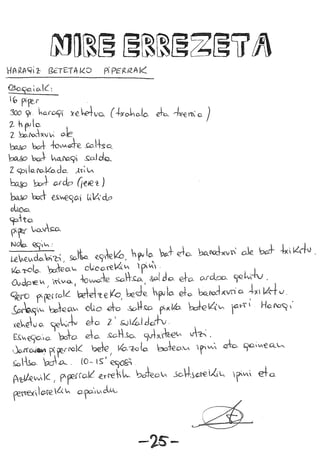 NIRE ERREZETA
HARAGIZ BETETAKO PIPERRAK
Osagaiak:
16 piper
300 gr haragi xehetua (txahala eta txerria)
2 tipula
2 baratxuri ale
baso bat tomate saltsa
baso bat haragi salda
2 goilarakada irin
baso bat ardo (jerez)
baso bat esnegai likido
olioa
gatza
piper hautsa
Nola egin:
Lehendabizi, saltsa egiteko, tipula bat eta baratxuri ale bat txikitu,
kazola batean olioarekin ipini.
Ondoren, irina, tomate saltsa, salda eta ardoa gehitu.
Gero piperrak betetzeko, beste tipula eta baratxuria txikitu.
Sartagin batean olio eta saltsa pixka batekin jarri. Haragi
xehetua gehitu eta 2' salteatu.
Esnegaia bota eta saltsa gutxitzen utzi.
Jarraian piperrak bete kazola batean ipini eta gainean
saltsa bota. 10-15' egosi
Azkenik, piperrak erretilu batean saltsarekin ipini eta
perrexilarekin apaindu.
-25-